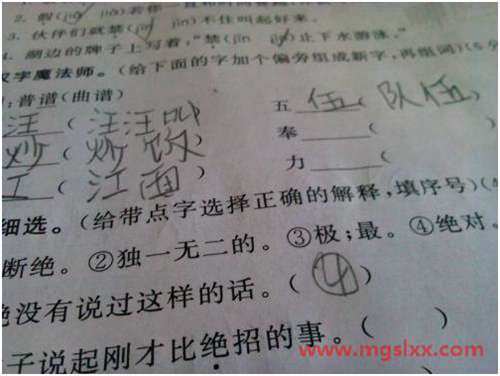 3. 伙伴们就禁(jīn jìn)不住叫起好来。
4. 湖边的牌子上写着,“禁(jīn jìn)止下水游泳。”
汉字魔法师。(给下面的字加个偏旁组成新字,再组词)(6分
:普 谱(曲谱) 五 伍(队伍)
汪(汪汪叫 奉 (
炒(炒饭 力 (
工 (江面)
细选。(给带点字选择正确的解释,填序号)(4
断绝。②独一无二的。③极;最。④绝对。
绝没有说过这样的话。(④)
子说起刚才比绝招的事。( )
www.mgslxx.com